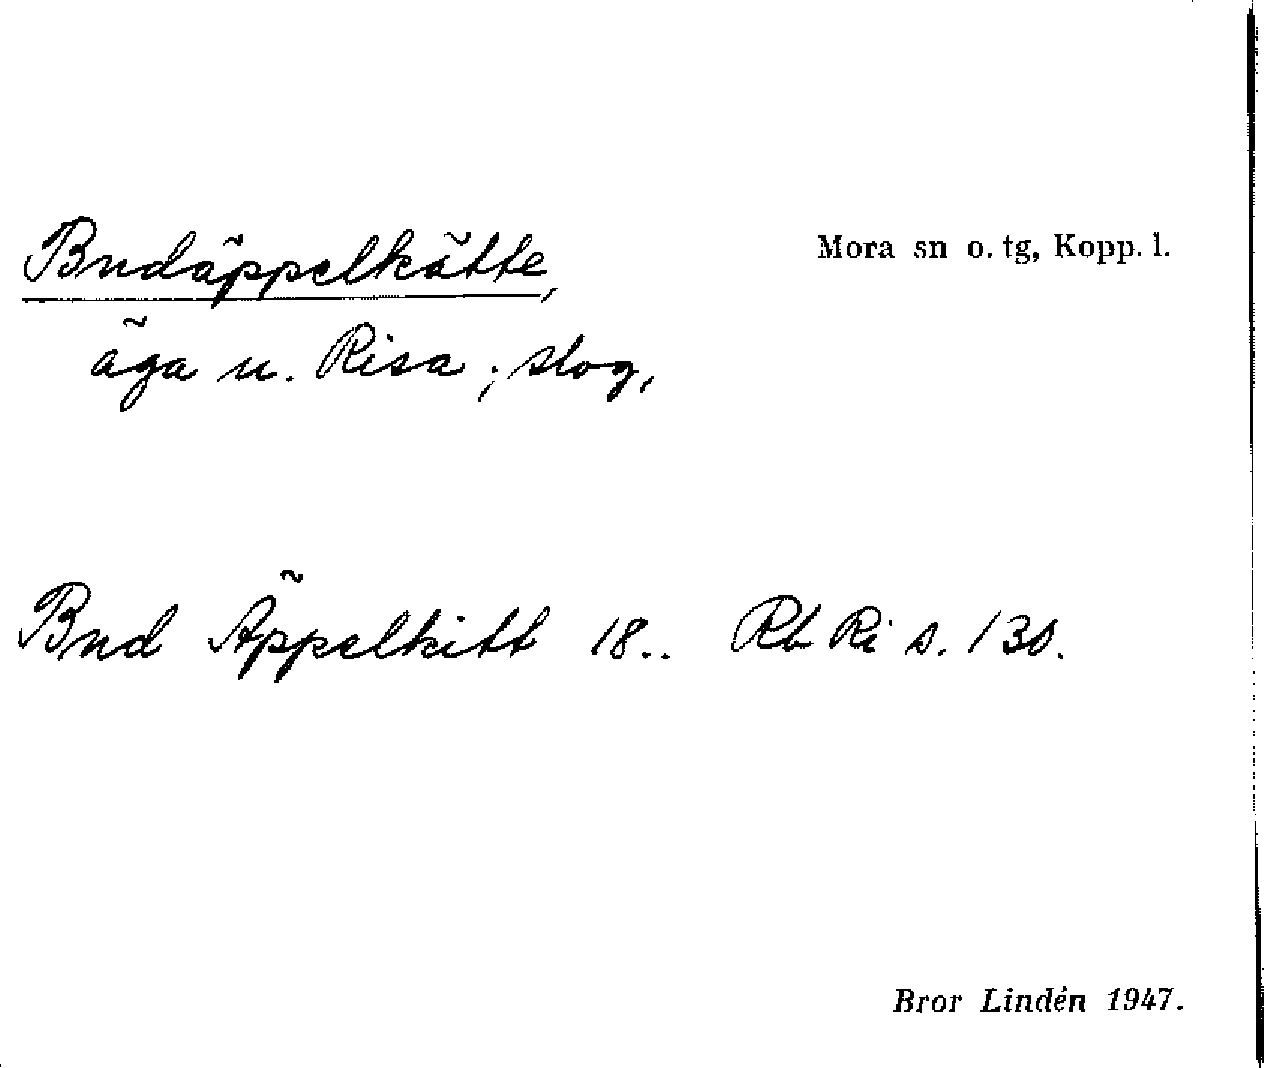 Budäppelkätte,
Mora sn o. tg, Kopp. l.
äga u. Risa ; slog,
Bud Äppelkitt 18.. Rb Ri s. 130.
Bror Lindén 1947.